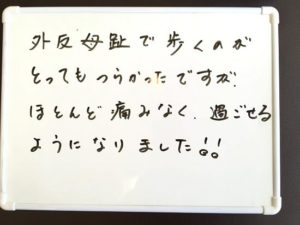 外反母趾で歩くのが
とってもつらかったですが、
ほとんど痛みなく、過ごせる
ようになりました!!